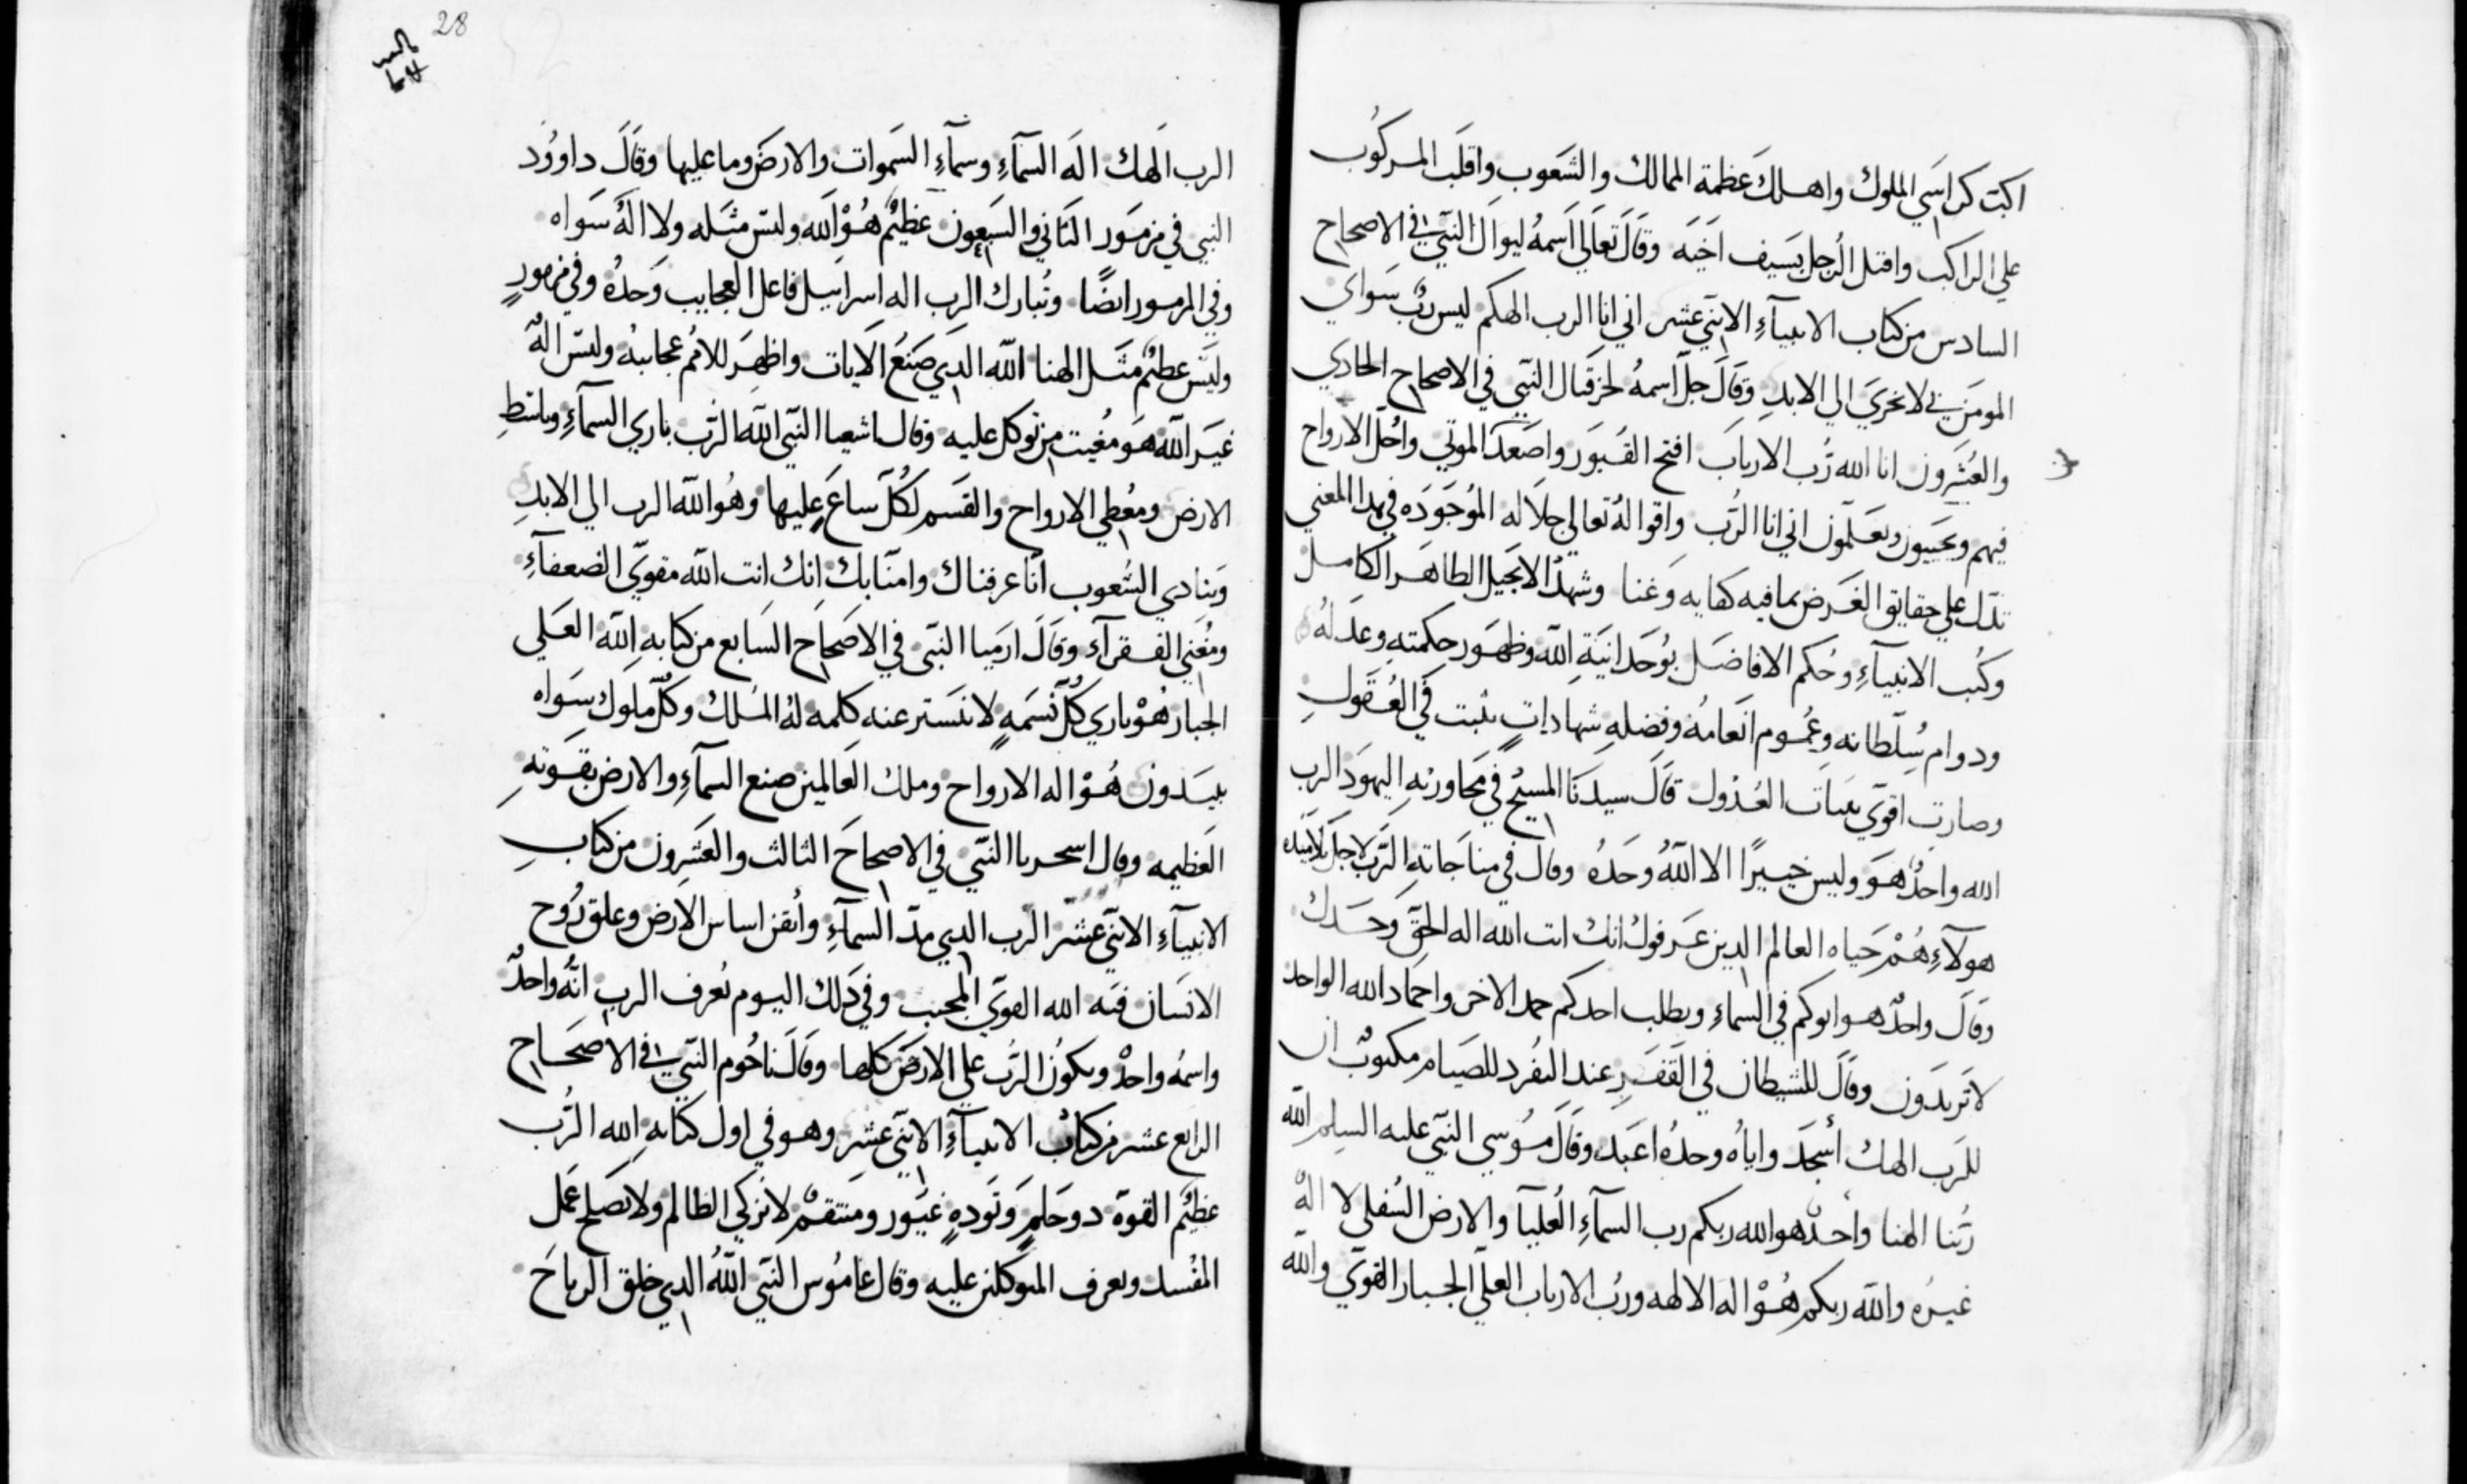 اكبت كراسي الملوك واهلك عظمة الممالك والشعوب واقلب المركوب
علي الراكب واقتل الرجل بسيف اخيه وقال تعالي اسمه ليوال النبي في الاصحاح
السادس من كتاب الانبيآء الاثني عشر اني انا الرب الهكم ليس رب سواي
المومن بي لا يخزي الي الابد وقال جل اسمه لحزقيال النبي في الاصحاح الحادي
والعشرون انا الله رب الارباب افتح القبور واصعد الموتي واحل الارواح
فيهم ويحييون ويعلمون اني انا الرب واقواله تعالي جلاله الموجوده في هدا المعني
تدل علي حقايق الغرض بما فيه كفايه وغنا وشهد الانجيل الطاهر الكامل
وكتب الانبيآء وحكم الافاضل بوحدانية الله وظهور حكمته وعدله
ودوام سلطانه وعموم انعامه وفضله شهادات تثبت في العقول
وصارت اقوي بينات العدول قال سيدنا المسيح في محاورته اليهود الرب
الله واحد هو وليس خيرا الا الله وحده وقال في مناجاته الرب لاجل تلاميده
هولآء هم حياه العالم الدين عرفوك انك انت الله اله الحق وحدك
وقال واحد هو ابوكم في السماء ويطلب احدكم حمد الاخر واحماد الله الواحد
لا تريدون وقال للشيطان في القفر عند التفرد للصيام مكتوب ان
للرب الهك أسجد واياه وحده اعبد وقال موسي النبي عليه السلم الله
ربنا الهنا واحد هو الله ربكم رب السمآء العليا والارض السفلي لا اله
غيره والله ربكم هو اله الالهه ورب الارباب العلي الجبار القوي والله
28
الرب الهك اله السمآء وسمآء السموات والارض وما عليها وقال داوود
النبي في مزمور الثاني والسبعون عظيم هو الله وليس مثله ولا اله سواه
وفي المزمور ايضا وتبارك الرب اله اسراييل فاعل العجايب وحده وفي مزمور
وليس عظيم مثل الهنا الله الدي صنع الايات واظهر للامم عجايبه وليس اله
غير الله هو مغيت من توكل عليه وقال اشعيا النبي الله الرب باري السمآء وباسط
الارض ومعطي الارواح والقسم لكل ساع عليها وهو الله الرب الي الابد
وينادي الشعوب انا عرفناك وامنا بك انك انت الله مقوي الضعفآء
ومغني الفقرآء وقال ارميا النبي في الاصحاح السابع من كتابه الله العلي
الجبار هو باري كل نسمه لا تستر عنه كلمه له الملك وكل ملوك سواه
يبيدون هو اله الارواح وملك العالمين صنع السمآء والارض بقوته
العظيمه وقال اسحريا النبي في الاصحاح الثالث والعشرون من كتاب
الانبيآء الاثني عشر الرب الدي مد السمآء وأتقن اساس الارض وعلق روح
الانسان فيه الله القوي المجيب وفي دلك اليوم يعرف الرب انه واحد
واسمه واحد ويكون الرب علي الارض كلها وقال ناحوم النبي في الاصحاح
الرابع عشر من كتاب الانبيآء الاثني عشر وهو في اول كتابه الله الرب
عظيم القوة دو حلم وتوده غيور ومنتقم لا يزكي الظالم ولا يصلح عمل
المفسد ويعرف المتوكلين عليه وقال عاموس النبي الله الدي خلق الرياح